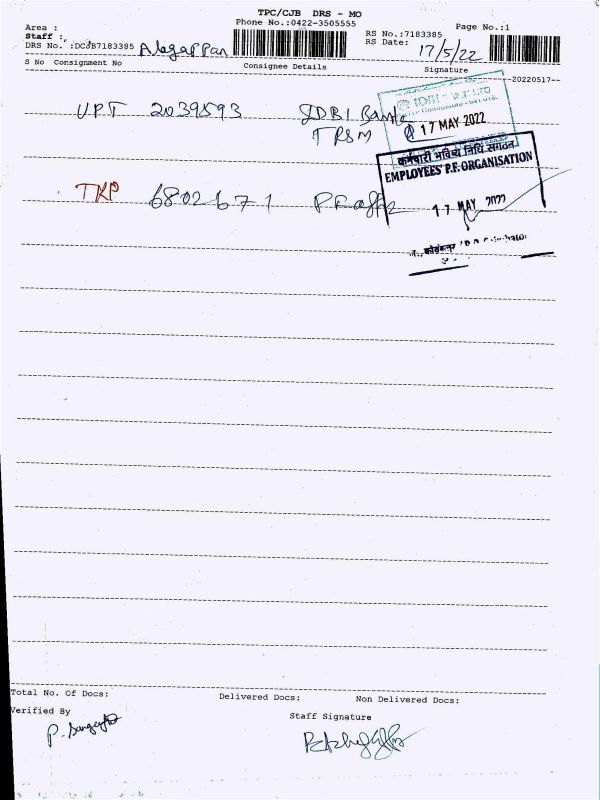 TPC/CJB DRS - MO
Phone No.:0422-3505555
Page No.:1
Area :
Staff :
RS No.:7183385
DRS No. :DCJB7183385 Alagappan
RS Date: 17/5/22
S No Consignment No Consignee Details Signature
--20220517--
UPT 2039593 IDBI Bank
17 MAY 2022
कर्मचारी भविष्य निधि संगठन
EMPLOYEES' P.F. ORGANISATION
17 MAY 2022
TKP 6802671 PF office
Total No. Of Docs: Delivered Docs: Non Delivered Docs:
Verified By Staff Signature